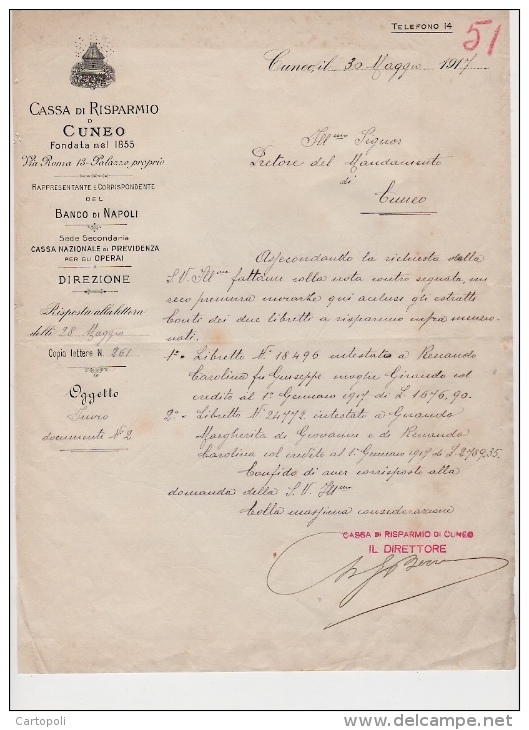 TELEFONO 14
51
CASSA DI RISPARMIO
DI
CUNEO
Fondata nel 1855
Via Roma 13-Palazzo proprio
RAPPRESENTANTE E CORRISPONDENTE
DEL
BANCO DI NAPOLI
Sede Secondaria
CASSA NAZIONALE DI PREVIDENZA
PER GLI OPERAI
DIREZIONE
Risposta alla lettera
delli 28 Maggio
Copia lettere N. 261
Oggetto
Invio
documenti N° 2
Cuneo, il 30 Maggio 1917
Ill.mo Signor
Pretore del Mandamento
di
Cuneo
Assecondando la richiesta dalla
S.V. Ill.ma fattami colla nota contro segnata, mi
reco premura inviarle qui acclusi gli estratti
Conti dei due libretti a risparmio infra menzio-
nati.
1° - Libretto N° 18496 intestato a Renaudo
Carolina fu Giuseppe moglie Giraudo col
credito al 1° Gennaro 1917 di L 1676,90.
2° - Libretto N° 24772 intestato a Giraudo
Margherita di Giovanni e di Renaudo
Carolina col credito al 1° Gennaro 1917 di L. 2709,35.
Confido di aver corrisposto alla
domanda della S. V. Ill.ma
Colla massima considerazione
CASSA DI RISPARMIO DI CUNEO
IL DIRETTORE
Cartopoli
www.delcampe.net